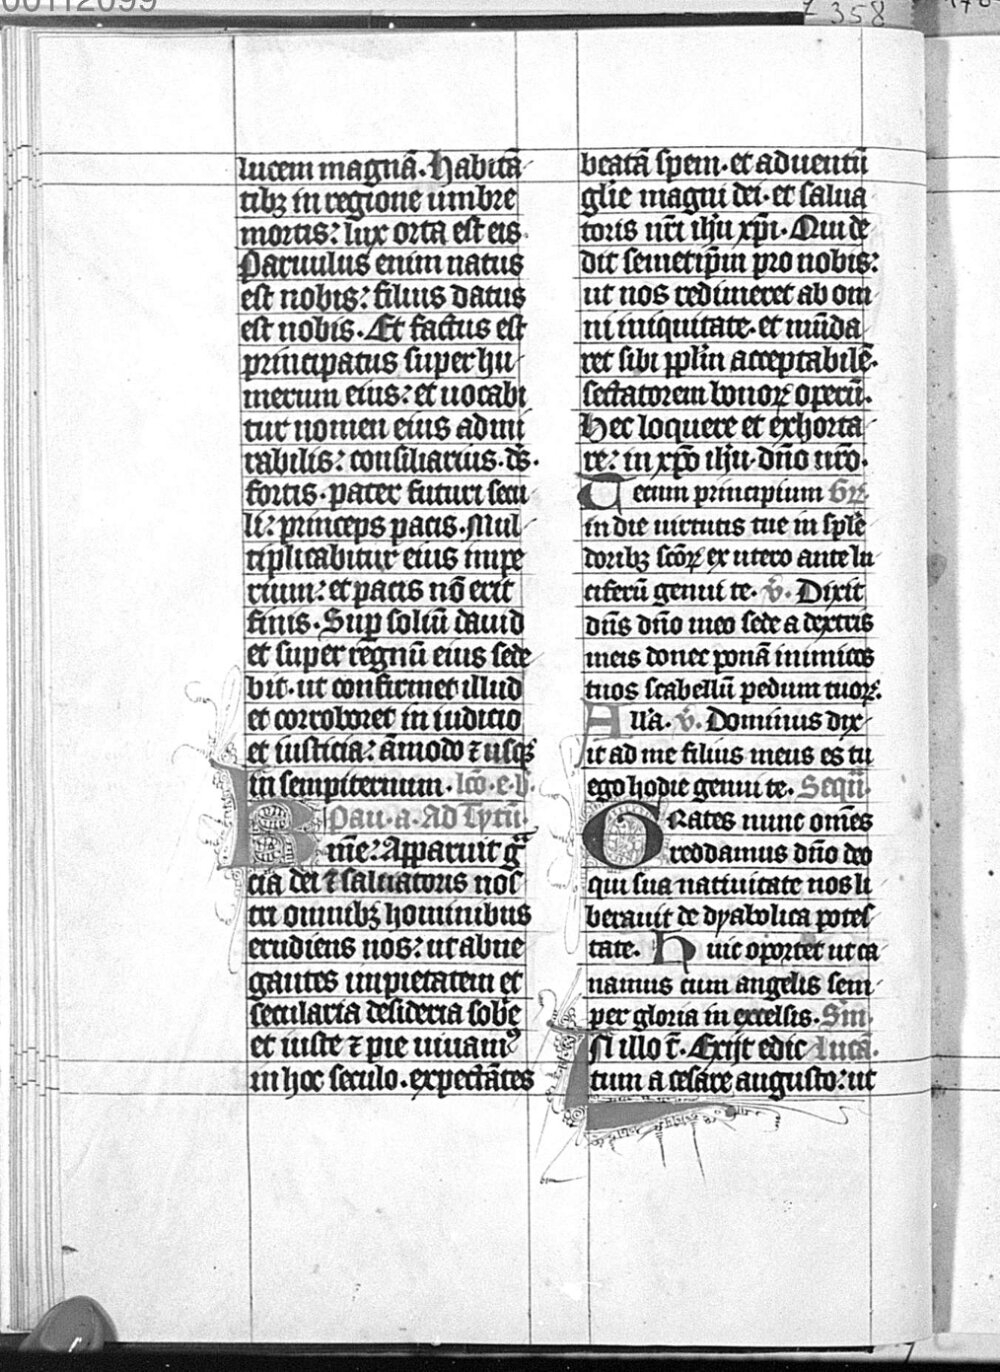 00112099
358
lucem magnā. Habitā
tibꝫ in regione umbre
mortis: lux orta est eis.
Paruulus enim natus
est nobis: filius datus
est nobis. Et factus est
principatus super hu
merum eius: et uocabi
tur nomen eius admi
rabilis: consiliarius. ds̄.
fortis. pater futuri secu
li: princeps pacis. Mul
tiplicabitur eius impe
rium: et pacis nō erit
finis. Suꝑ soliū dauid
et super regnū eius sede
bit. ut confirmet illud
et corroboret in iudicio
et iusticia: āmodo ⁊ usqꝫ
in sempiternum. lcō. e. b.
Pau. a. Ad Tytū.
K mē: Apparuit gͣ
cia dei ⁊ saluatoris nos
tri omnibꝫ hominibus
erudiens nos: ut abne
gantes impietatem et
secularia desideria sobͥe
et iuste ⁊ pie uiuamꝰ
in hoc seculo. expectātes
beatā spem. et aduentū
glīe magni dei. et salua
toris nr̄i ih̄u xp̄i. Qui de
dit semetip̄m pro nobis:
ut nos redimeret ab om
ni iniquitate. et mūda
ret sibi pplm̄ acceptabilē.
sectatorem bonoꝝ operū.
Hec loquere et exhorta
re: in xp̄o ih̄u. dn̄o nr̄o.
Tecum principium Gr̄.
in die uirtutis tue in splē
doribꝫ scōꝝ ex utero ante lu
ciferū genui te. v̄. Dixit
dn̄s dn̄o meo sede a dextris
meis donec ponā inimicos
tuos scabellū pedum tuoꝝ.
All'a. v̄. Dominus dix
it ad me filius meus es tu
ego hodie genui te. Seqū.
GRates nunc om̄es
reddamus dn̄o deo
qui sua natiuitate nos li
berauit de dyabolica potes
tate. Huic oportet ut ca
namus cum angelis sem
per gloria in excelsis. Sm̄.
IN illo t̄. Exijt edic Lucā.
tum a cesare augusto: ut